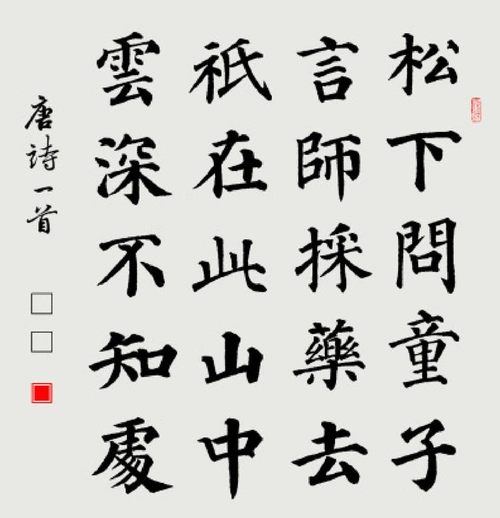 松下問童子
言師採藥去
祇在此山中
雲深不知處
唐詩一首